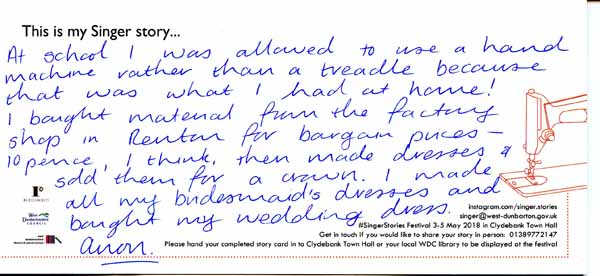 This is my Singer story...
At school I was allowed to use a hand
machine rather than a treadle because
that was what I had at home!
I bought material from the factory
shop in Renton for bargain prices –
10 pence, I think, then made dresses &
sold them for a crown. I made
all my bridesmaid's dresses and
bought my wedding dress.
Anon.
instagram.com/singer.stories
singer@west-dunbarton.gov.uk
#SingerStories Festival 3-5 May 2018 in Clydebank Town Hall
Get in touch if you would like to share your story in person: 01389772147
Please hand your completed story card in to Clydebank Town Hall or your local WDC library to be displayed at the festival